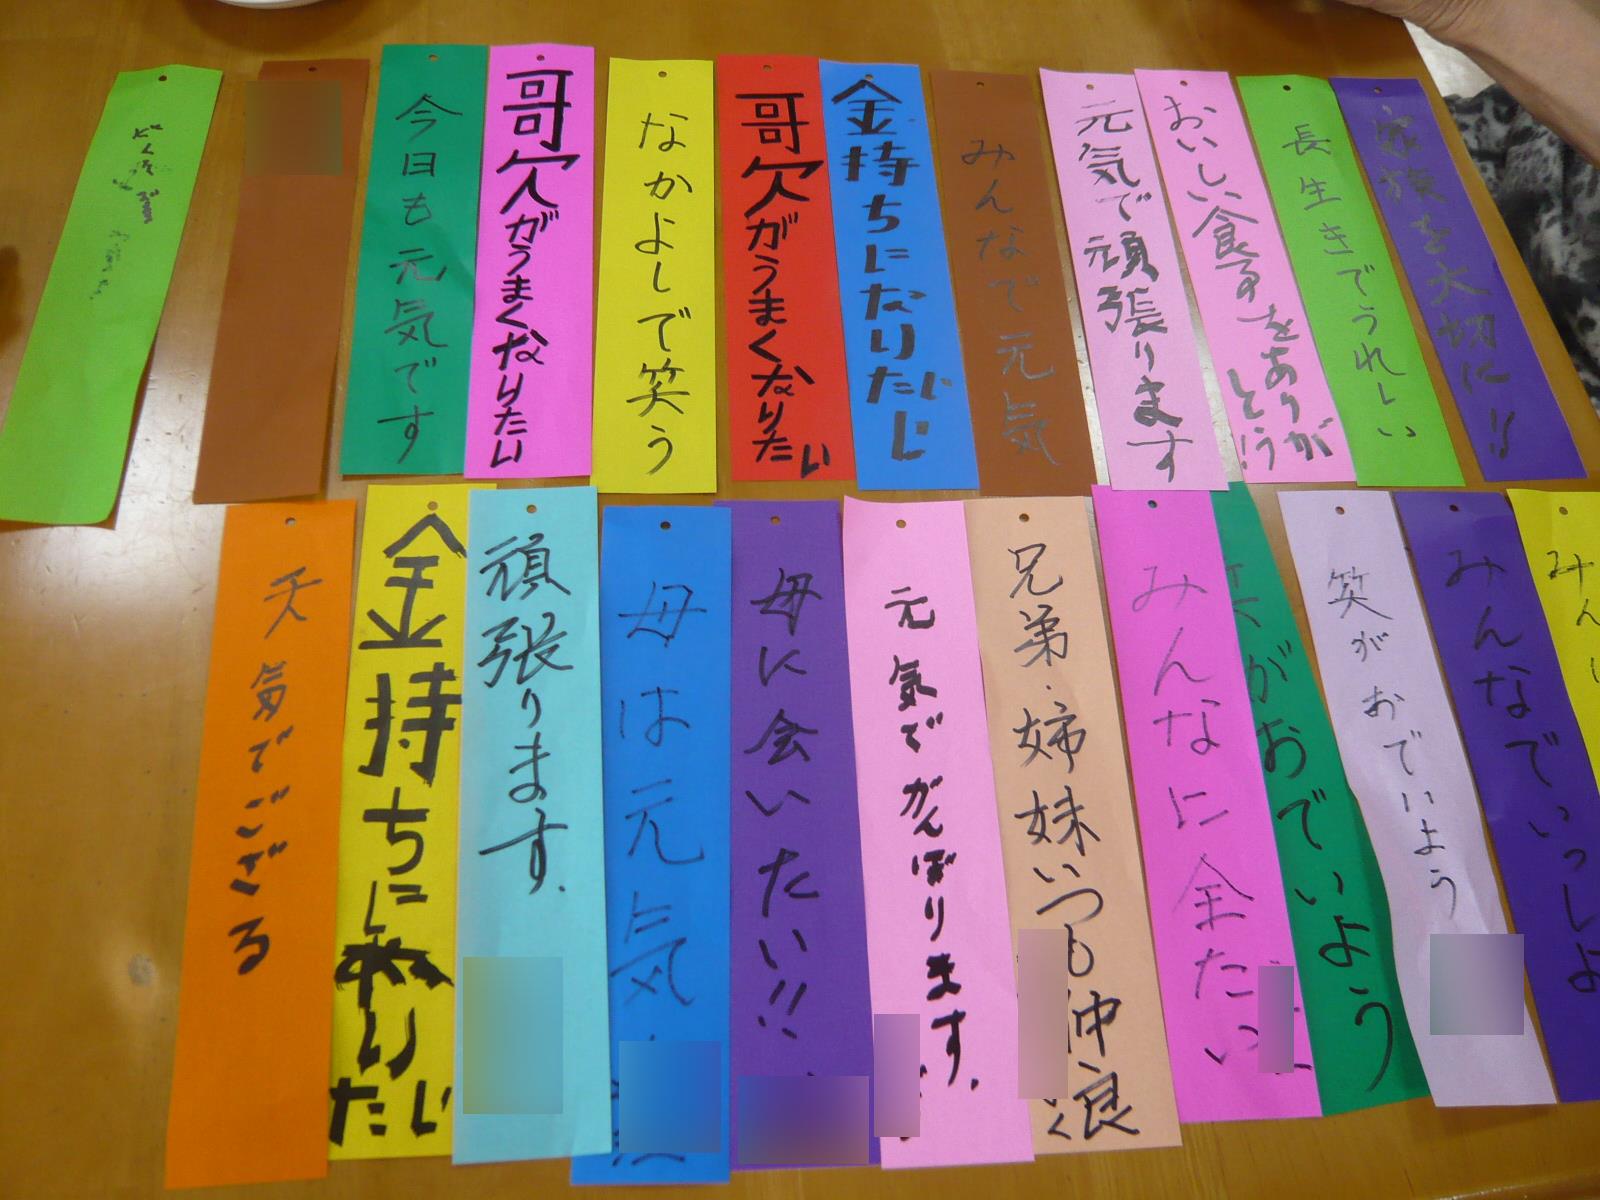 今日も元気です
歌がうまくなりたい
なかよしで笑う
歌がうまくなりたい
金持ちになりたい
みんなで元気
元気で頑張ります
おいしい食事をありがとう!
長生きでうれしい
家族を大切に!!
天気でござる
金持ちになりたい
頑張ります.
母は元気
母に会いたい!!
元気でがんばります.
兄弟.姉妹いつも仲良く
みんなに会
笑がおでいよう
笑がおでいよう
みんなでいっしょ
みん